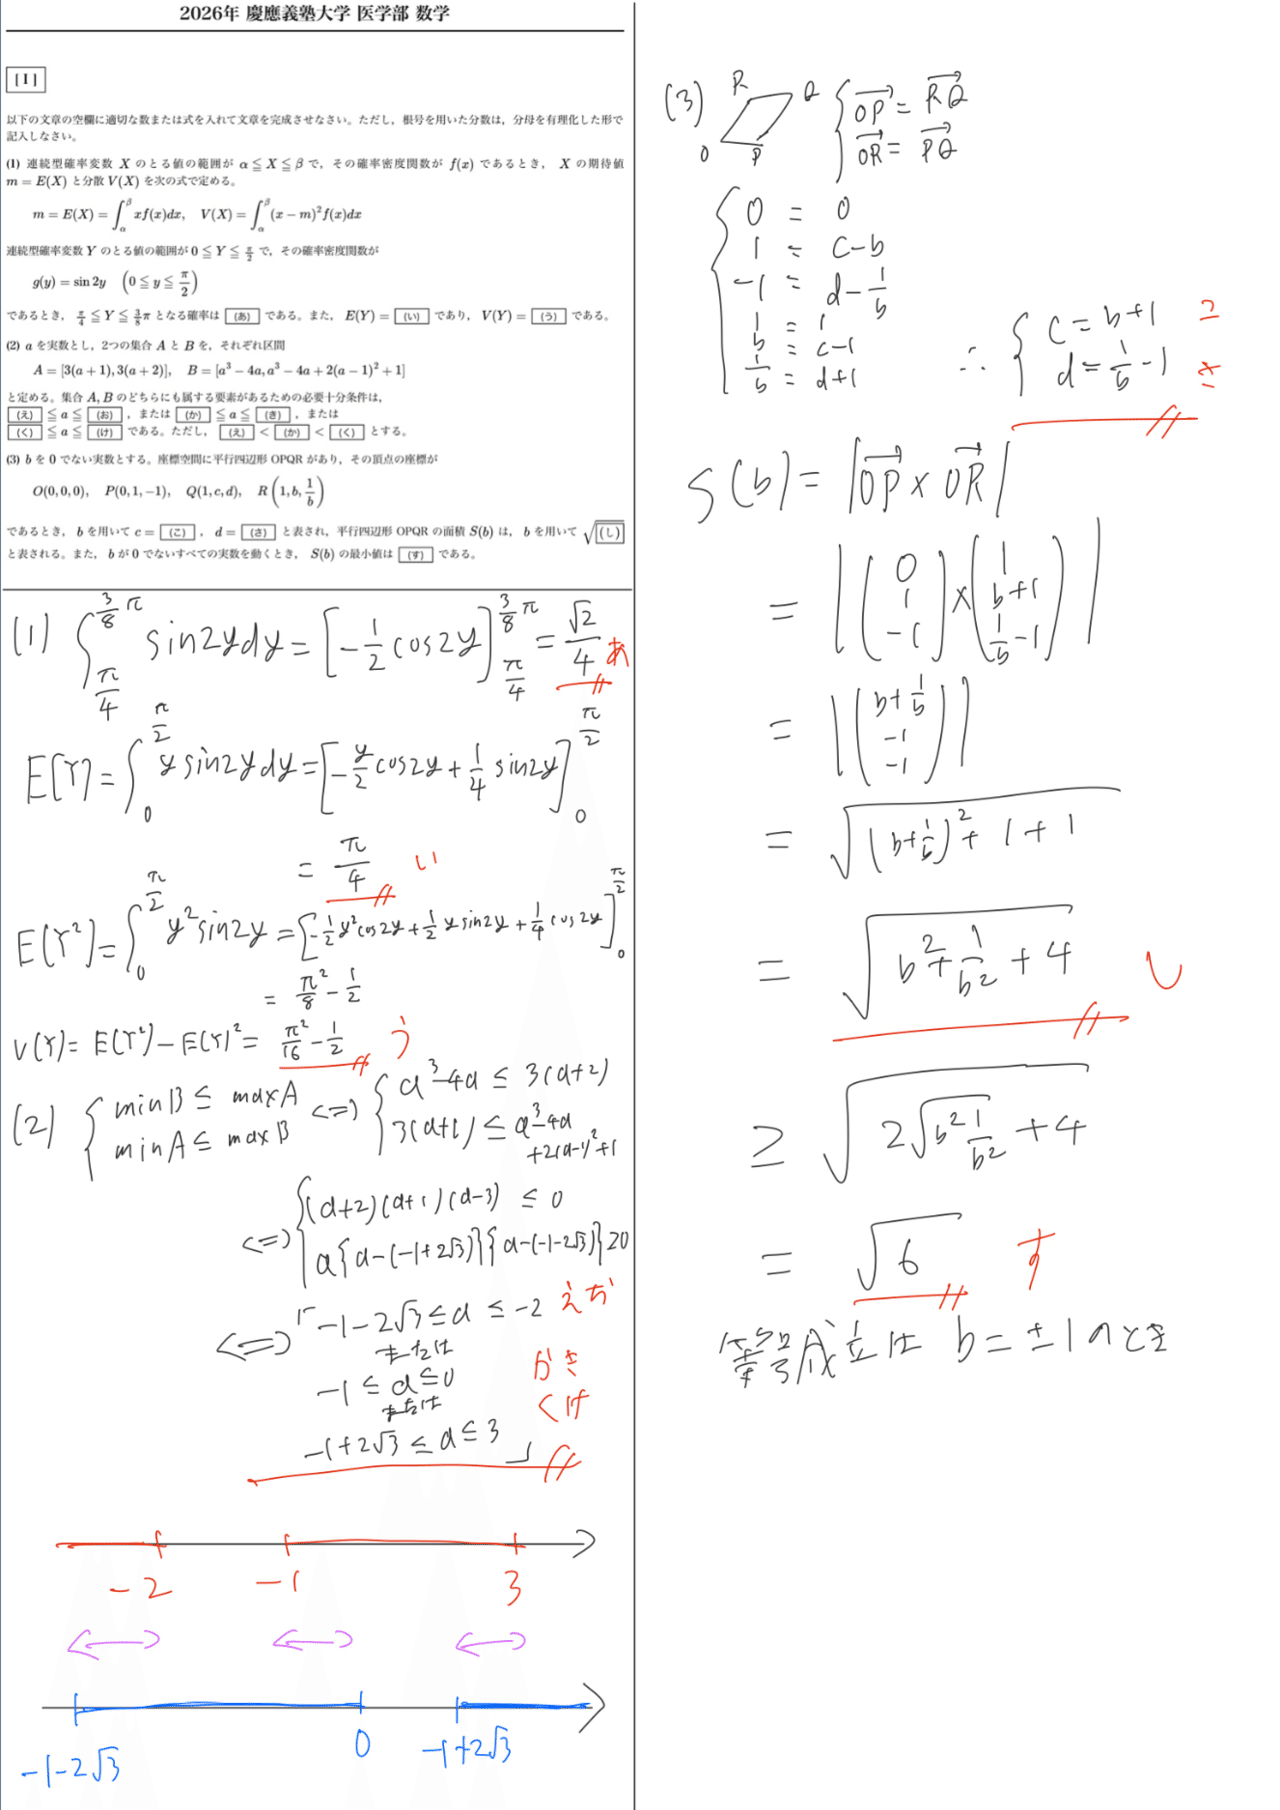 2026年 慶應義塾大学 医学部 数学
[ I ]
以下の文章の空欄に適切な数または式を入れて文章を完成させなさい。ただし，根号を用いた分数は，分母を有理化した形で
記入しなさい。
(1) 連続型確率変数 X のとる値の範囲が α ≦ X ≦ β で，その確率密度関数が f(x) であるとき， X の期待値
m = E(X) と分散 V(X) を次の式で定める。
m = E(X) = ∫_α^β xf(x)dx, V(X) = ∫_α^β (x − m)²f(x)dx
連続型確率変数 Y のとる値の範囲が 0 ≦ Y ≦ π/2 で，その確率密度関数が
g(y) = sin 2y (0 ≦ y ≦ π/2)
であるとき， π/4 ≦ Y ≦ 3/8 π となる確率は (あ) である。また， E(Y) = (い) であり， V(Y) = (う) である。
(2) a を実数とし，2つの集合 A と B を，それぞれ区間
A = [3(a + 1), 3(a + 2)], B = [a³ − 4a, a³ − 4a + 2(a − 1)² + 1]
と定める。集合 A, B のどちらにも属する要素があるための必要十分条件は，
(え) ≦ a ≦ (お) ，または (か) ≦ a ≦ (き) ，または
(く) ≦ a ≦ (け) である。ただし， (え) < (か) < (く) とする。
(3) b を 0 でない実数とする。座標空間に平行四辺形 OPQR があり，その頂点の座標が
O(0, 0, 0), P(0, 1, −1), Q(1, c, d), R(1, b, 1/b)
であるとき， b を用いて c = (こ) ， d = (さ) と表され，平行四辺形 OPQR の面積 S(b) は， b を用いて √(し)
と表される。また， b が 0 でないすべての実数を動くとき， S(b) の最小値は (す) である。
(1) ∫_{π/4}^{3/8 π} sin2y dy = [−1/2 cos2y]_{π/4}^{3/8 π} = √2/4 あ
E[Y] = ∫_0^{π/2} y sin2y dy = [−y/2 cos2y + 1/4 sin2y]_0^{π/2}
= π/4 い
E[Y²] = ∫_0^{π/2} y² sin2y = [−1/2 y² cos2y + 1/2 y sin2y + 1/4 cos2y]_0^{π/2}
= π²/8 − 1/2
V(Y) = E(Y²) − E(Y)² = π²/16 − 1/2 う
(2) { minB ≤ maxA ⇔ { a³−4a ≤ 3(a+2)
minA ≤ maxB 3(a+1) ≤ a³−4a
+2(a−1)²+1
⇔ { (a+2)(a+1)(a−3) ≤ 0
a{a−(−1+2√3)}{a−(−1−2√3)} ≥ 0
⇔ 「−1−2√3 ≤ a ≤ −2 えお
または
−1 ≤ a ≤ 0 かき
または くけ
−1+2√3 ≤ a ≤ 3 」
−2 −1 3
−1−2√3 0 −1+2√3
(3) R Q O P { OP→ = RQ→
OR→ = PQ→
{ 0 = 0
1 = c−b
−1 = d−1/b
1 = 1
b = c−1
1/b = d+1
∴ { c = b+1 こ
d = 1/b −1 さ
S(b) = |OP→ × OR→|
= |(0, 1, −1) × (1, b+1, 1/b −1)|
= |(b+1/b, −1, −1)|
= √((b+1/b)² + 1 + 1)
= √(b² + 1/b² + 4) し
≥ √(2√(b² 1/b²) + 4)
= √6 す
等号成立は b = ±1 のとき